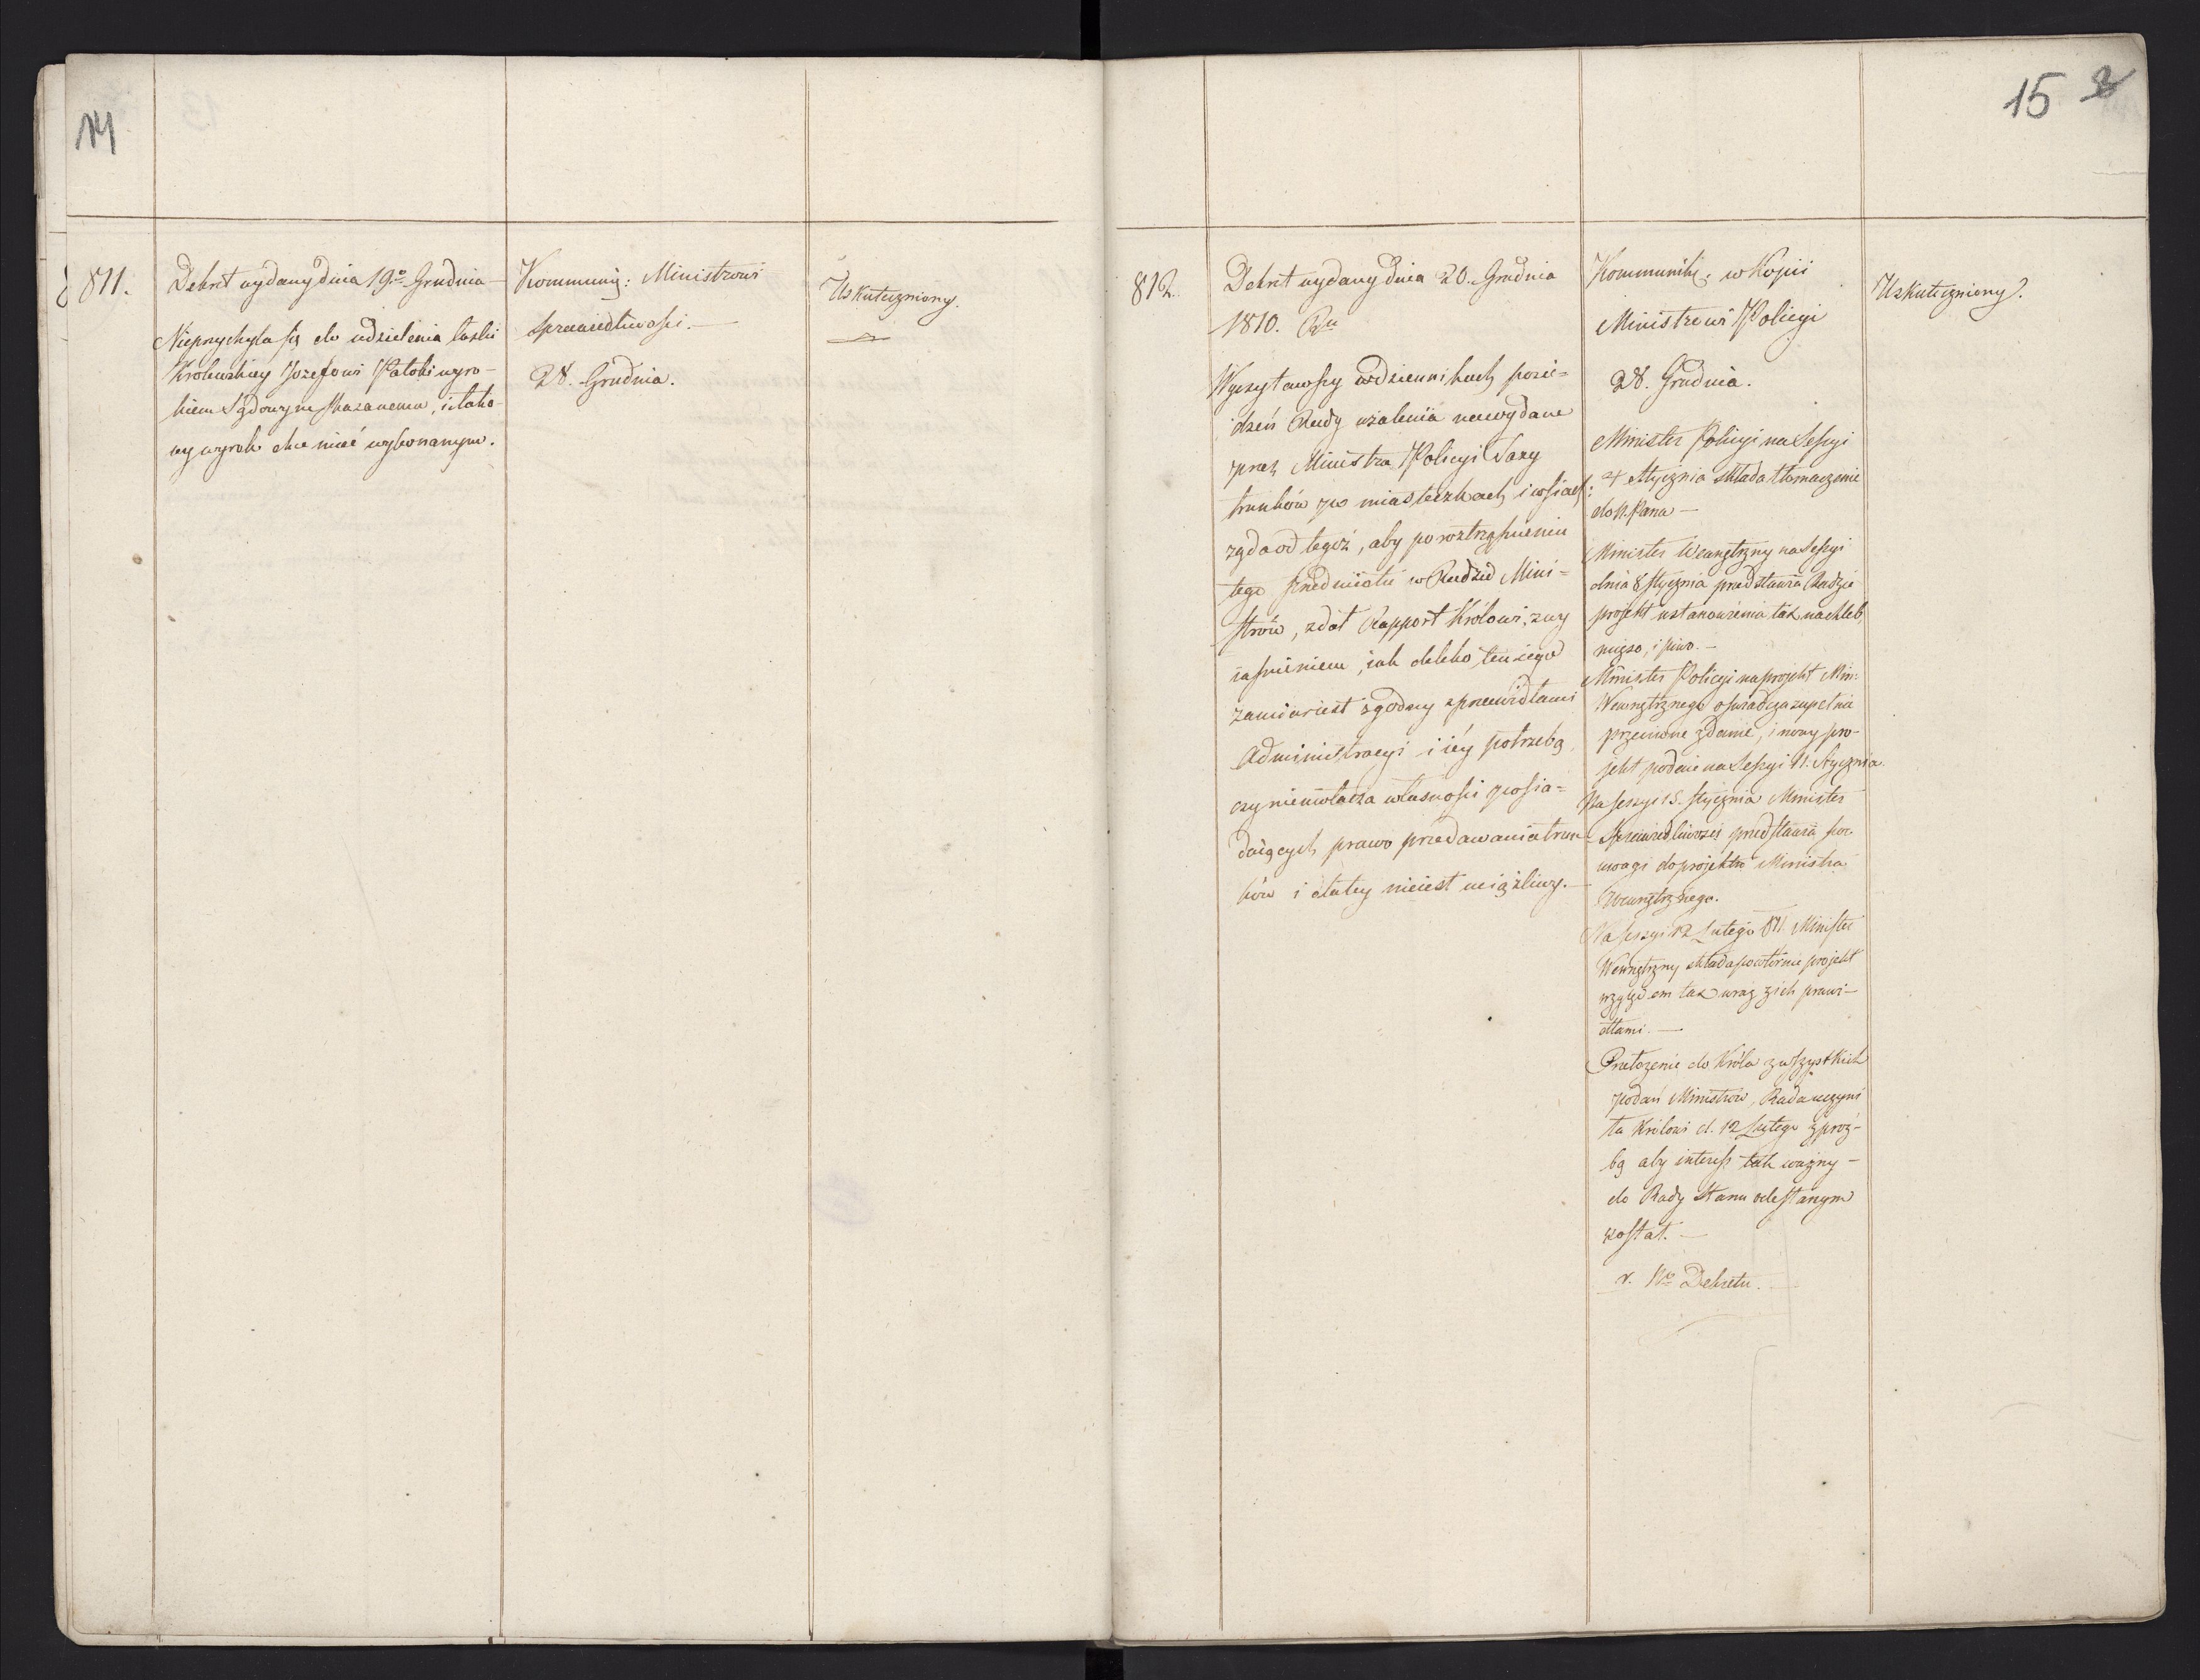 14
811.
Dekret wydany dnia 19º Grudnia
Nieprzychyla się do udzielenia łaski
Krolewskiey Jozefowi Patoki wyro-
kiem Sądowym skazanemu, i tako-
wy wyrok chce mieć wykonanym.
Kommunię: Ministrowi
Sprawiedliwości. —
28. Grudnia.
Uskuteczniony.
15 8
812.
Dekret wydany dnia 20. Grudnia
1810. Rn
Wyczytawszy w dziennikach posie-
dzeń Rady użalenia na wydane
przez Ministra Policyi Taxy
trunków po miasteczkach i wsiach:
żąda od tegoż, aby po roztrząśnieniu
tego przedmiotu w Radzie Mini-
strów, zdał Rapport Królowi, z wy
iaśnieniem, iak daleko ten iego
zamiar iest zgodny z prawidłami
Administracyi i iéy potrzebą
czy nieuwłacza własności posia-
daiących prawo przedawania trun-
ków i dla tey nieiest uciążliwy. —
Kommunik: w Kopii
Ministrowi Policyi
28. Grudnia.
Minister Policyi na Sessyi
4 Stycznia składa tłomaczenie
do N. Pana —
Minister Wewnętrzny na Sessyi
dnia 8 Stycznia przedstawia Radzie
projekt ustanowienia tax na chleb,
mięso, i piwo. —
Minister Policyi na projekt Min:
Wewnętrznego oświadcza zupełnie
przeciwne zdanie, i nowy pro-
jekt podaie na Sessyi 11. Stycznia.
Na sessyi 15. Stycznia Minister
Sprawiedliwości przedstawia swe
uwagi do projektu Ministra
Wewnętrznego.
Na sessyi 12 Lutego 811. Minister
Wewnętrzny składa powtórnie projekt
względem tax wraz z ich prawi-
dłami. —
Przełożenie do Króla z wszystkich
podań Ministrów, Rada uczyni
ła Królowi d. 12 Lutego z proź-
bą aby interess tak ważny —
do Rady Stanu odesłanym
został. —
v. Nº Dekretu. —
Uskuteczniony.